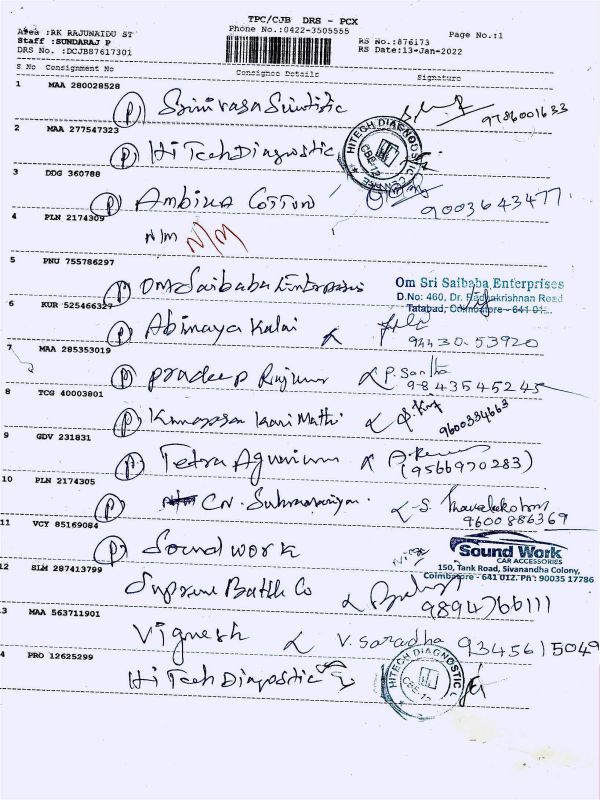 TPC/CJB DRS - PCX
Area :RK RAJUNAIDU ST Phone No.:0422-3505555 Page No.:1
Staff :SUNDARAJ P RS No.:876173
DRS No. :DCJB87617301 RS Date:13-Jan-2022
S No Consignment No Consignee Details Signature
1 MAA 280028528
(P) Srinivasa Scientific 9786001633
2 MAA 277547323
(P) Hi Tech Diagnostic HITECH DIAGNOSTIC CENTRE CBE-12
3 DDG 360788
(P) Ambika Cotton 9003643477
4 PLN 2174309
N/M N/M
5 PNU 755786297
(P) Om Saibaba Enterprises Om Sri Saibaba Enterprises
D.No: 460, Dr. Radhakrishnan Road
Tatabad, Coimbatore - 641 012.
6 KUR 525466327
(P) Abinaya Kalai 94430.53920
7 MAA 285353019
(P) Pradeep P. Santha
9843545245
8 TCG 40003801
(P) Kani Mathi 9600334663
9 GDV 231831
(P) Tetra Aquarium (9566970283)
10 PLN 2174305
(P) CN. Subramaniyan S. Thavalakshmi
9600886369
11 VCY 85169084
(P) Sound work Sound Work
CAR ACCESSORIES
150, Tank Road, Sivanandha Colony,
Coimbatore - 641 012. Ph : 90035 17786
12 SLM 287413799
Suprime Battle Co 9894766111
13 MAA 563711901
Vignesh V. Saradha 9345615049
4 PRO 12625299
Hi Tech Diagnostic HITECH DIAGNOSTIC CBE-12